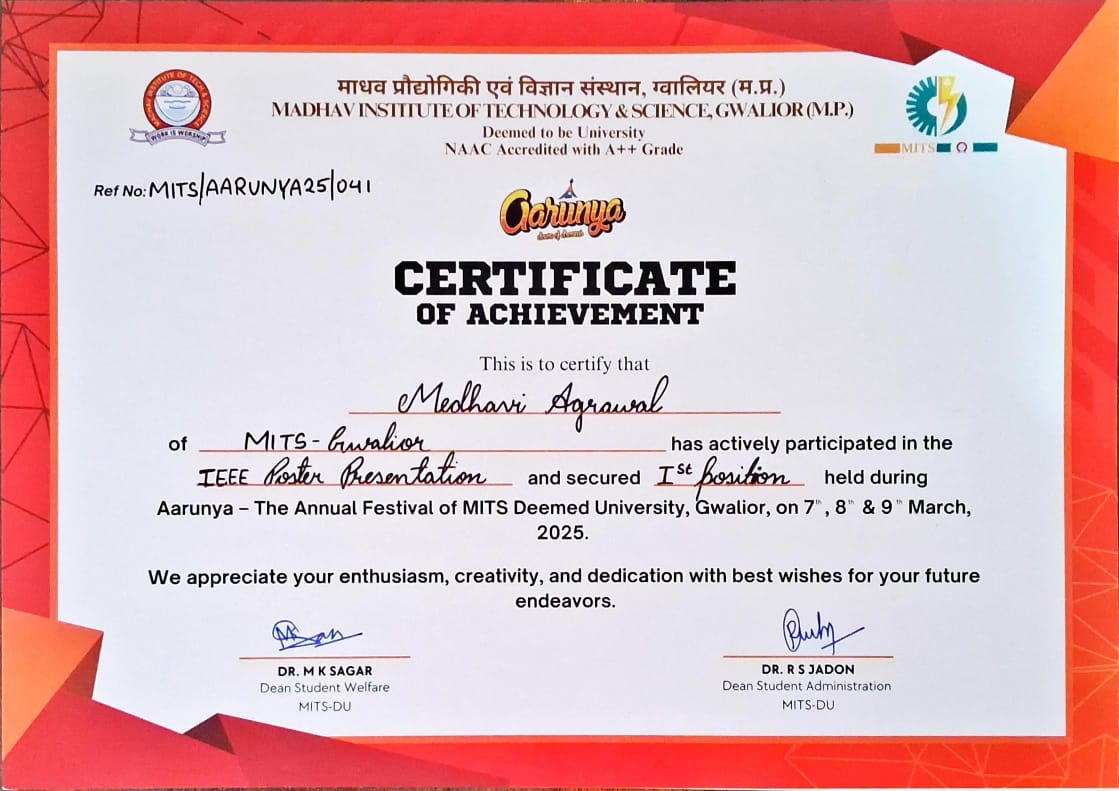 माधव प्रौद्योगिकी एवं विज्ञान संस्थान, ग्वालियर (म.प्र.)
MADHAV INSTITUTE OF TECHNOLOGY & SCIENCE, GWALIOR (M.P.)
Deemed to be University
NAAC Accredited with A++ Grade
MADHAV INSTITUTE OF TECH & SCIENCE
WORK IS WORSHIP
MITS
Ref No: MITS/AARUNYA25/041
Aarunya
CERTIFICATE
OF ACHIEVEMENT
This is to certify that
Medhavi Agrawal
of MITS - Gwalior has actively participated in the
IEEE Poster Presentation and secured Ist position held during
Aarunya – The Annual Festival of MITS Deemed University, Gwalior, on 7th, 8th & 9th March,
2025.
We appreciate your enthusiasm, creativity, and dedication with best wishes for your future
endeavors.
DR. M K SAGAR
Dean Student Welfare
MITS-DU
DR. R S JADON
Dean Student Administration
MITS-DU